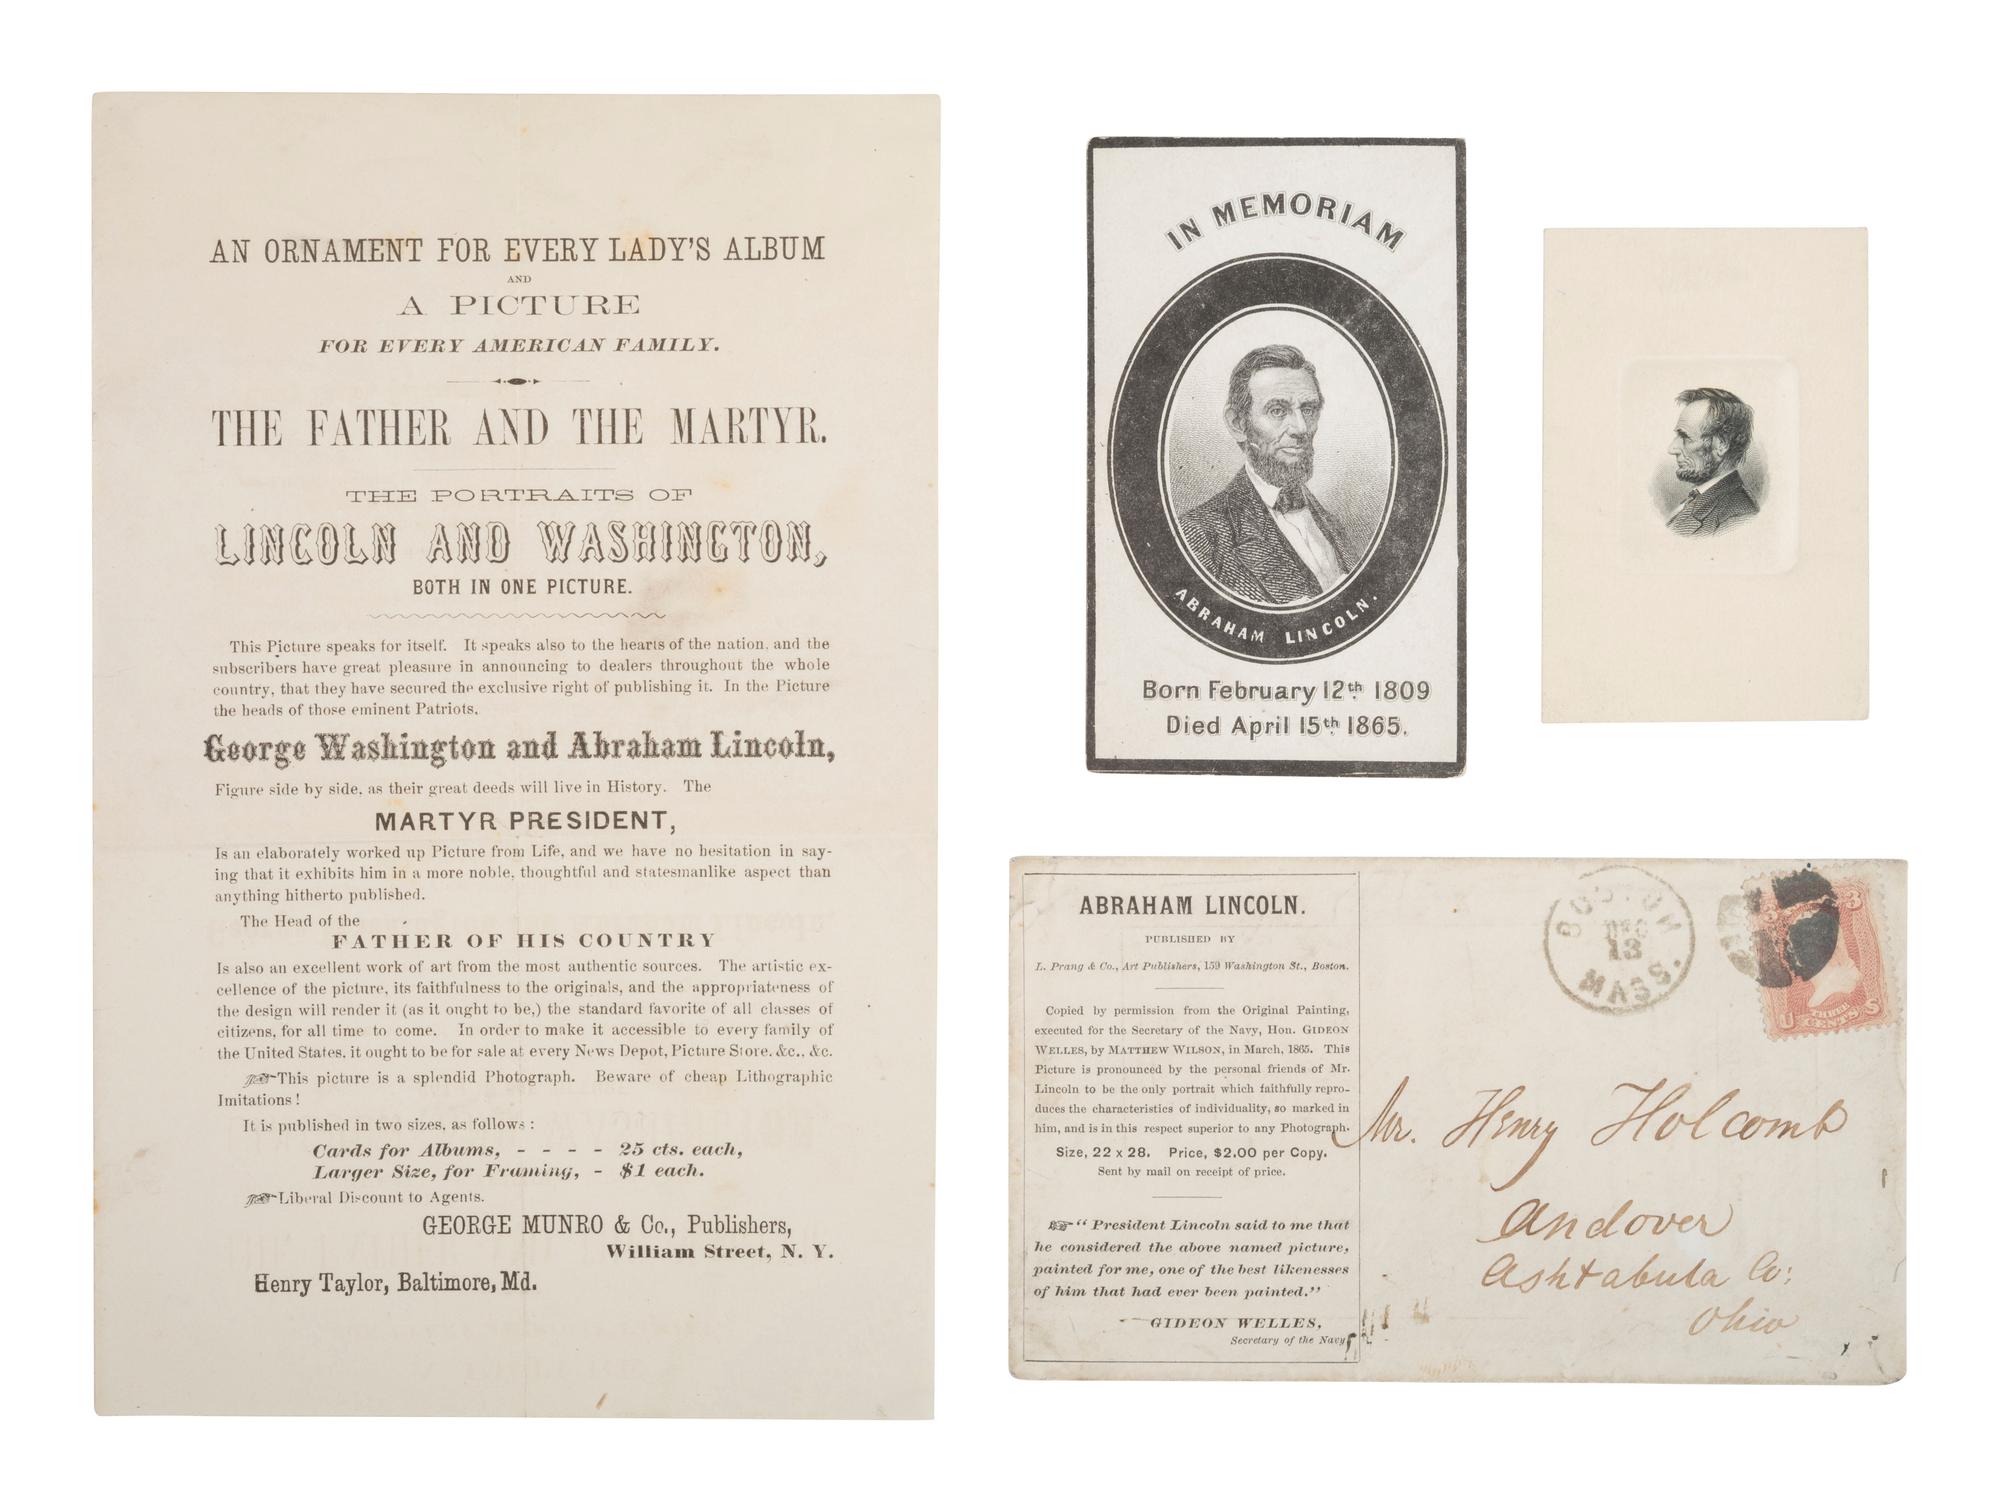 AN ORNAMENT FOR EVERY LADY'S ALBUM
AND
A PICTURE
FOR EVERY AMERICAN FAMILY.
THE FATHER AND THE MARTYR.
THE PORTRAITS OF
LINCOLN AND WASHINGTON,
BOTH IN ONE PICTURE.
This Picture speaks for itself. It speaks also to the hearts of the nation, and the
subscribers have great pleasure in announcing to dealers throughout the whole
country, that they have secured the exclusive right of publishing it. In the Picture
the heads of those eminent Patriots,
George Washington and Abraham Lincoln,
Figure side by side, as their great deeds will live in History. The
MARTYR PRESIDENT,
Is an elaborately worked up Picture from Life, and we have no hesitation in say-
ing that it exhibits him in a more noble, thoughtful and statesmanlike aspect than
anything hitherto published.
The Head of the
FATHER OF HIS COUNTRY
Is also an excellent work of art from the most authentic sources. The artistic ex-
cellence of the picture, its faithfulness to the originals, and the appropriateness of
the design will render it (as it ought to be,) the standard favorite of all classes of
citizens, for all time to come. In order to make it accessible to every family of
the United States, it ought to be for sale at every News Depot, Picture Store, &c., &c.
☞This picture is a splendid Photograph. Beware of cheap Lithographic
Imitations!
It is published in two sizes, as follows:
Cards for Albums, - - - - 25 cts. each,
Larger Size, for Framing, - $1 each.
☞Liberal Discount to Agents.
GEORGE MUNRO & Co., Publishers,
William Street, N. Y.
Henry Taylor, Baltimore, Md.
IN MEMORIAM
ABRAHAM LINCOLN.
Born February 12th 1809
Died April 15th 1865.
ABRAHAM LINCOLN.
PUBLISHED BY
L. Prang & Co., Art Publishers, 159 Washington St., Boston.
Copied by permission from the Original Painting,
executed for the Secretary of the Navy, Hon. GIDEON
WELLES, by MATTHEW WILSON, in March, 1865. This
Picture is pronounced by the personal friends of Mr.
Lincoln to be the only portrait which faithfully repro-
duces the characteristics of individuality, so marked in
him, and is in this respect superior to any Photograph.
Size, 22 x 28. Price, $2.00 per Copy.
Sent by mail on receipt of price.
☞"President Lincoln said to me that
he considered the above named picture,
painted for me, one of the best likenesses
of him that had ever been painted."
GIDEON WELLES,
Secretary of the Navy
BOSTON
DEC
13
MASS.
3
U CENTS S
Mr. Henry Holcomb
Andover
Ashtabula Co:
Ohio